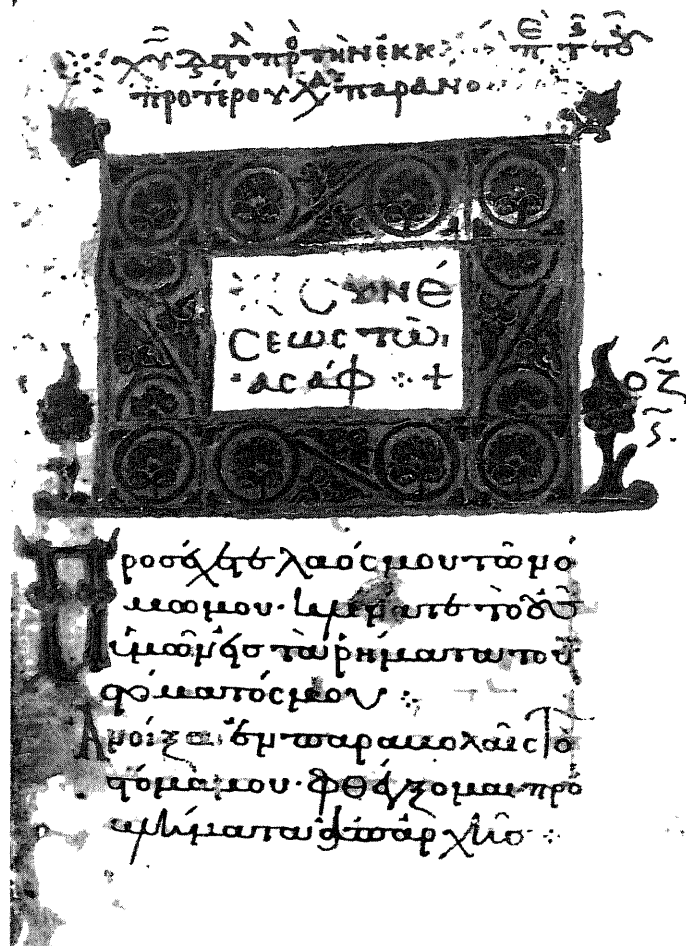 προτέρου παρανο
Συνέ
σεως τῶ
ασάφ :+
οζ
Προσέχετε λαός μου τῶ νό
μω μου· κλίνατε τὸ οὖς
ὑμῶν εἰς τὰ ῥήματα τοῦ
στόματός μου :
Ἀνοίξω ἐν παραβολαῖς τὸ
στόμα μου· φθέγξομαι προ
βλήματα ἀπ' ἀρχῆς :